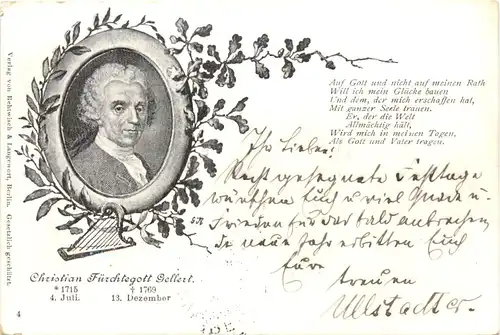 Verlag von Rehtwisch & Langewort, Berlin. Gesetzlich geschützt.
Auf Gott und nicht auf meinen Rath
Will ich mein Glücke bauen
Und dem, der mich erschaffen hat,
Mit ganzer Seele trauen.
Er, der die Welt
Allmächtig hält,
Wird mich in meinen Tagen,
Als Gott und Vater tragen.
Ihr Lieben!
Recht gesegnete Festtage
wünschen Euch u. viel Gnade u.
Frieden für das bald anbrechen-
de neue Jahr erbitten Euch
Eure
treuen
Ullstadter.
Christian Fürchtegott Gellert.
* 1715 † 1769
4. Juli. 13. Dezember
4